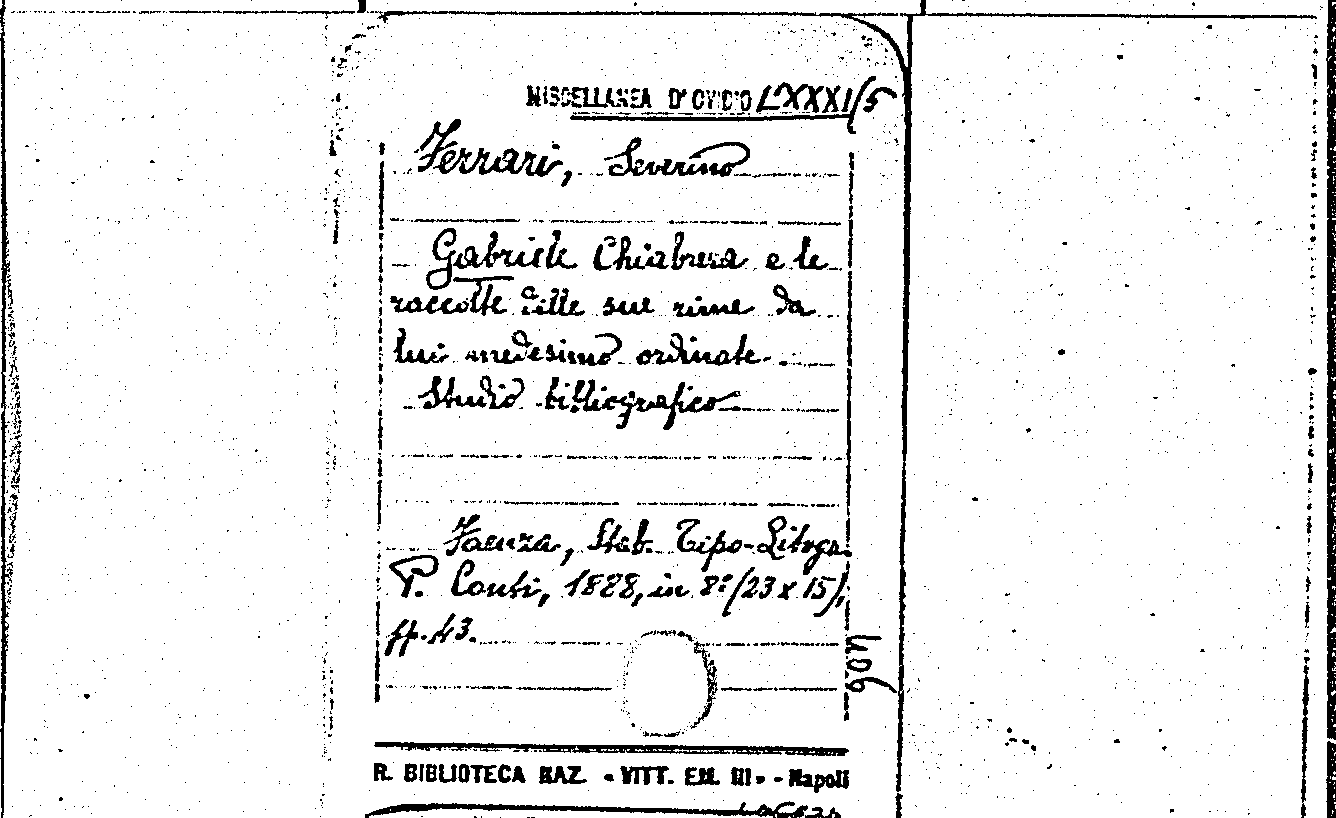 MISCELLANEA D'OVIDIO LXXXI/5
Ferrari, Severino
Gabriele Chiabrera e le
raccolte delle sue rime da
lui medesimo ordinate.
Studio bibliografico
Faenza, Stab. Tipo-Litogr.
P. Conti, 1888, in 8º (23 x 15),
pp. 43.
R. BIBLIOTECA NAZ. « VITT. EM. III » - Napoli